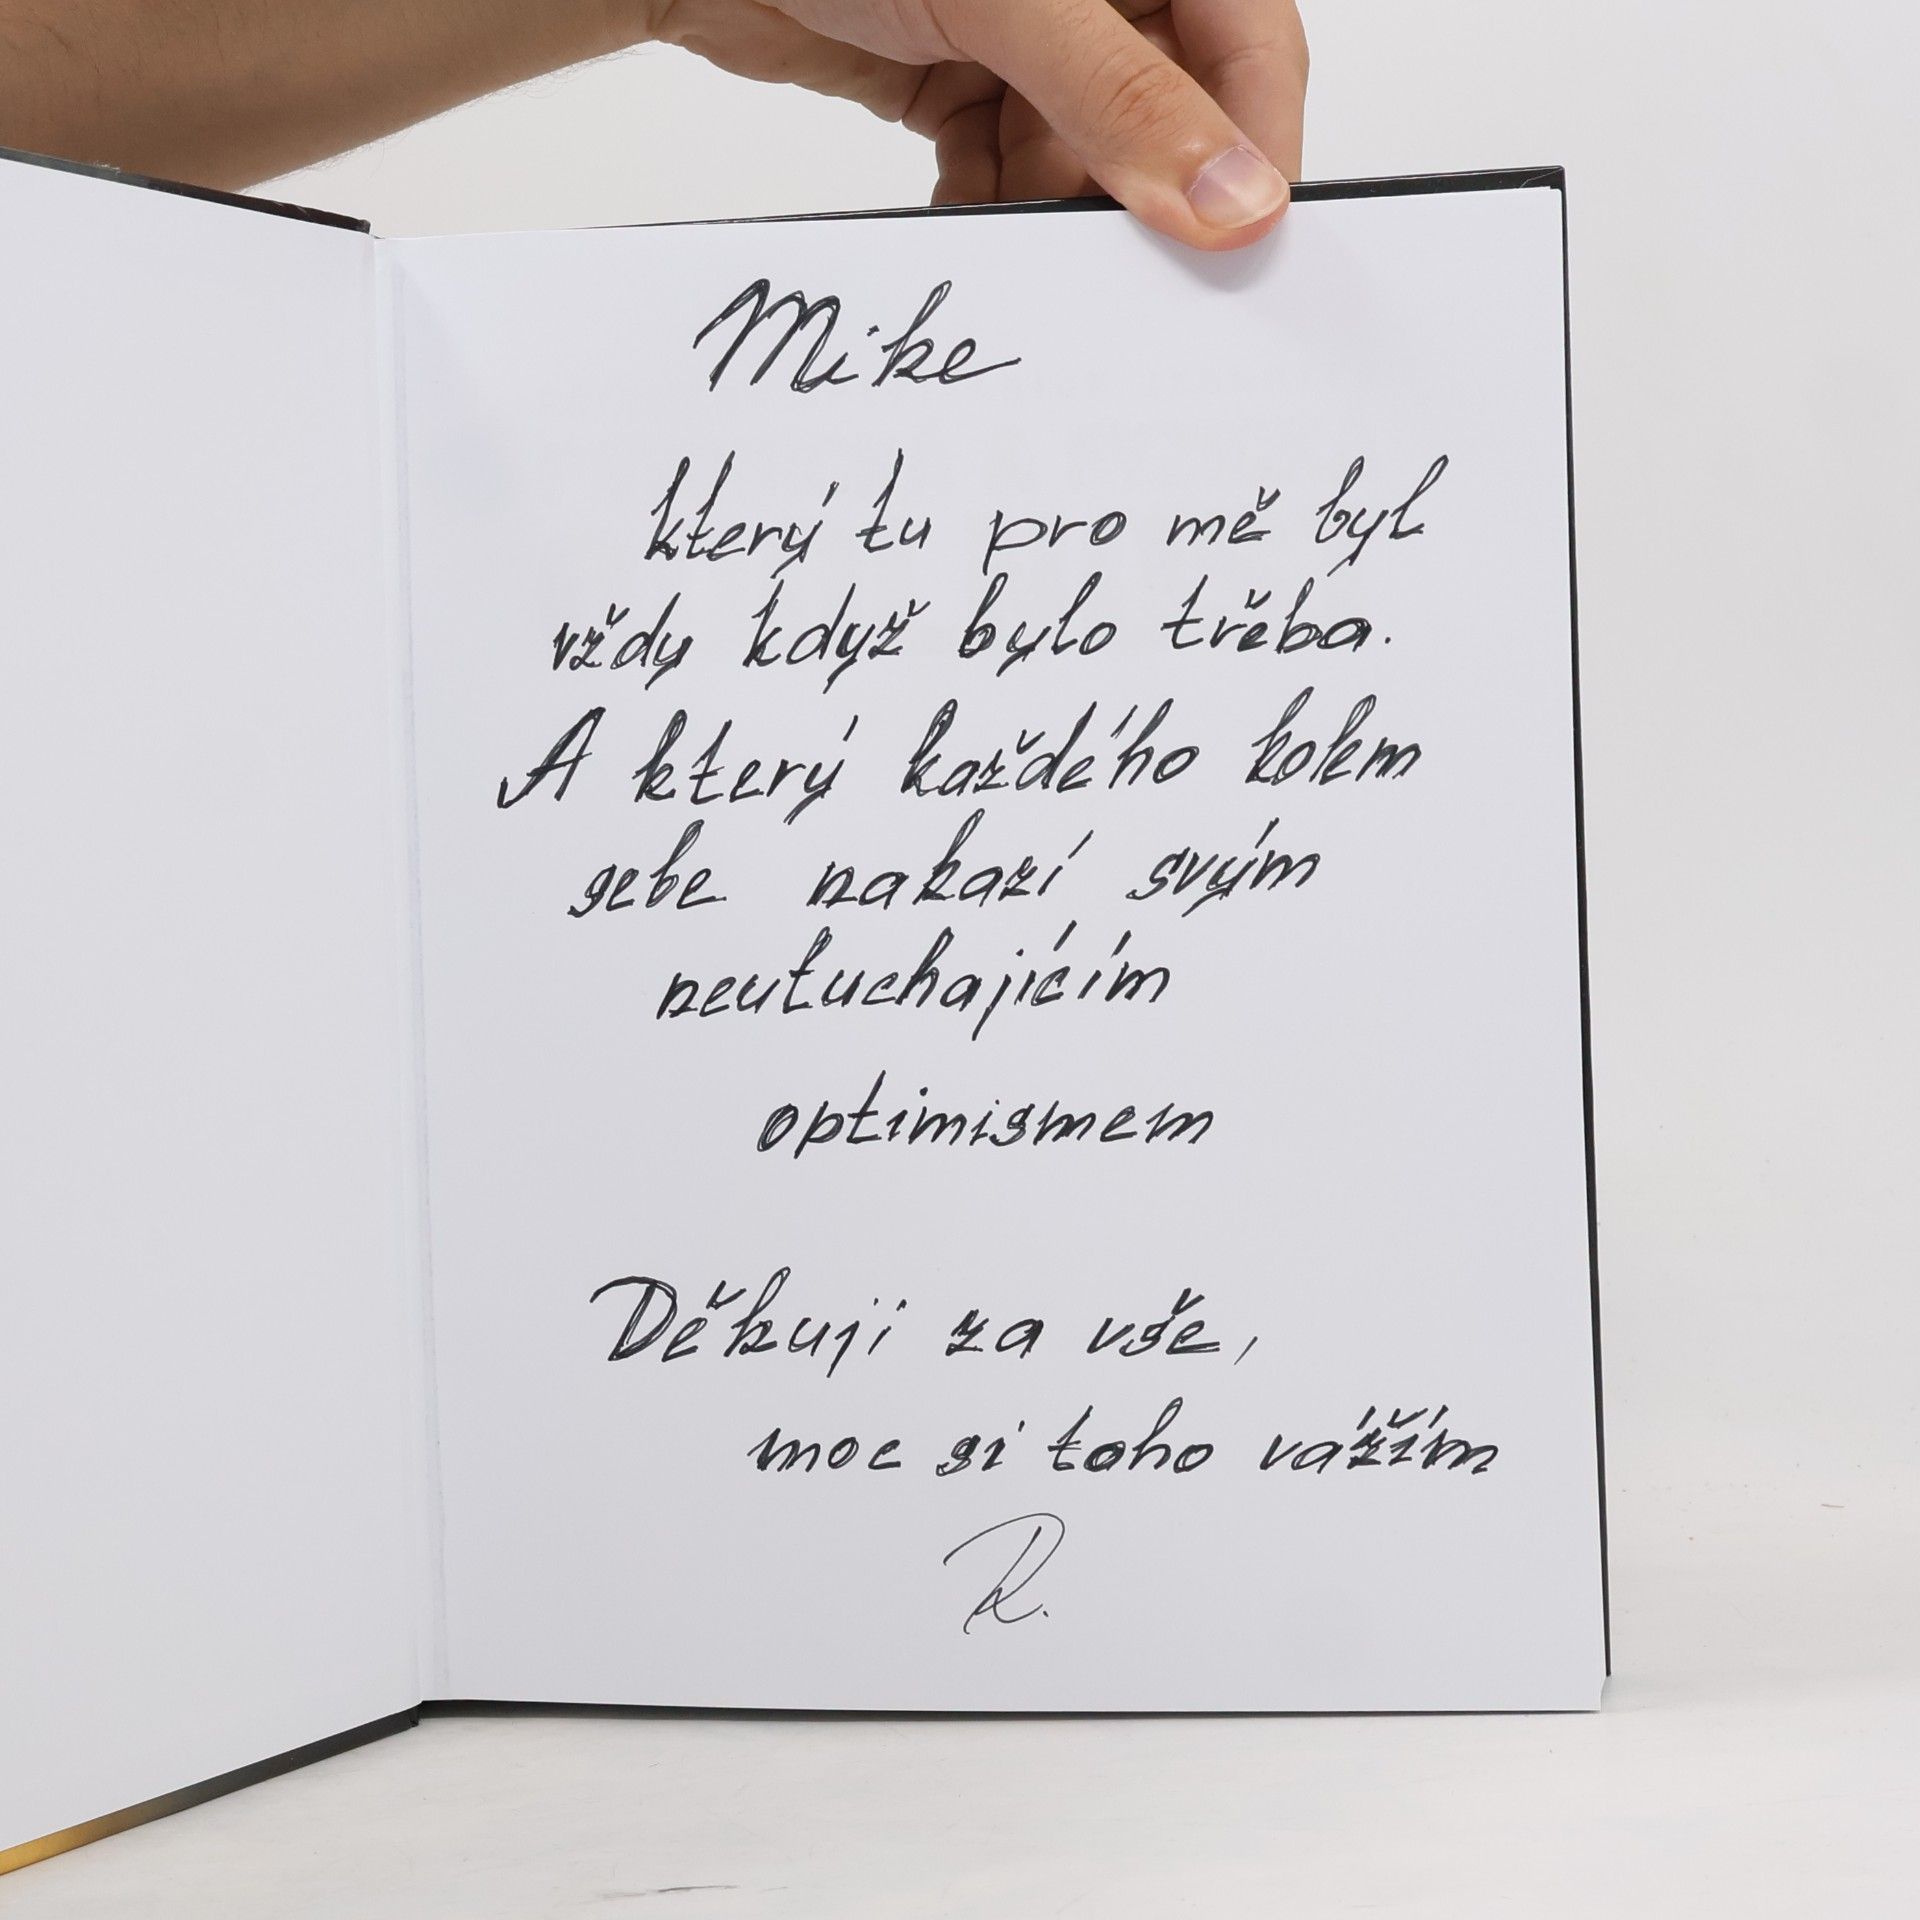 Mike
který tu pro mě byl
vždy když bylo třeba.
A který každého kolem
sebe nakazí svým
neutuchajícím
optimismem
Děkuji za vše,
moc si toho vážím
R.